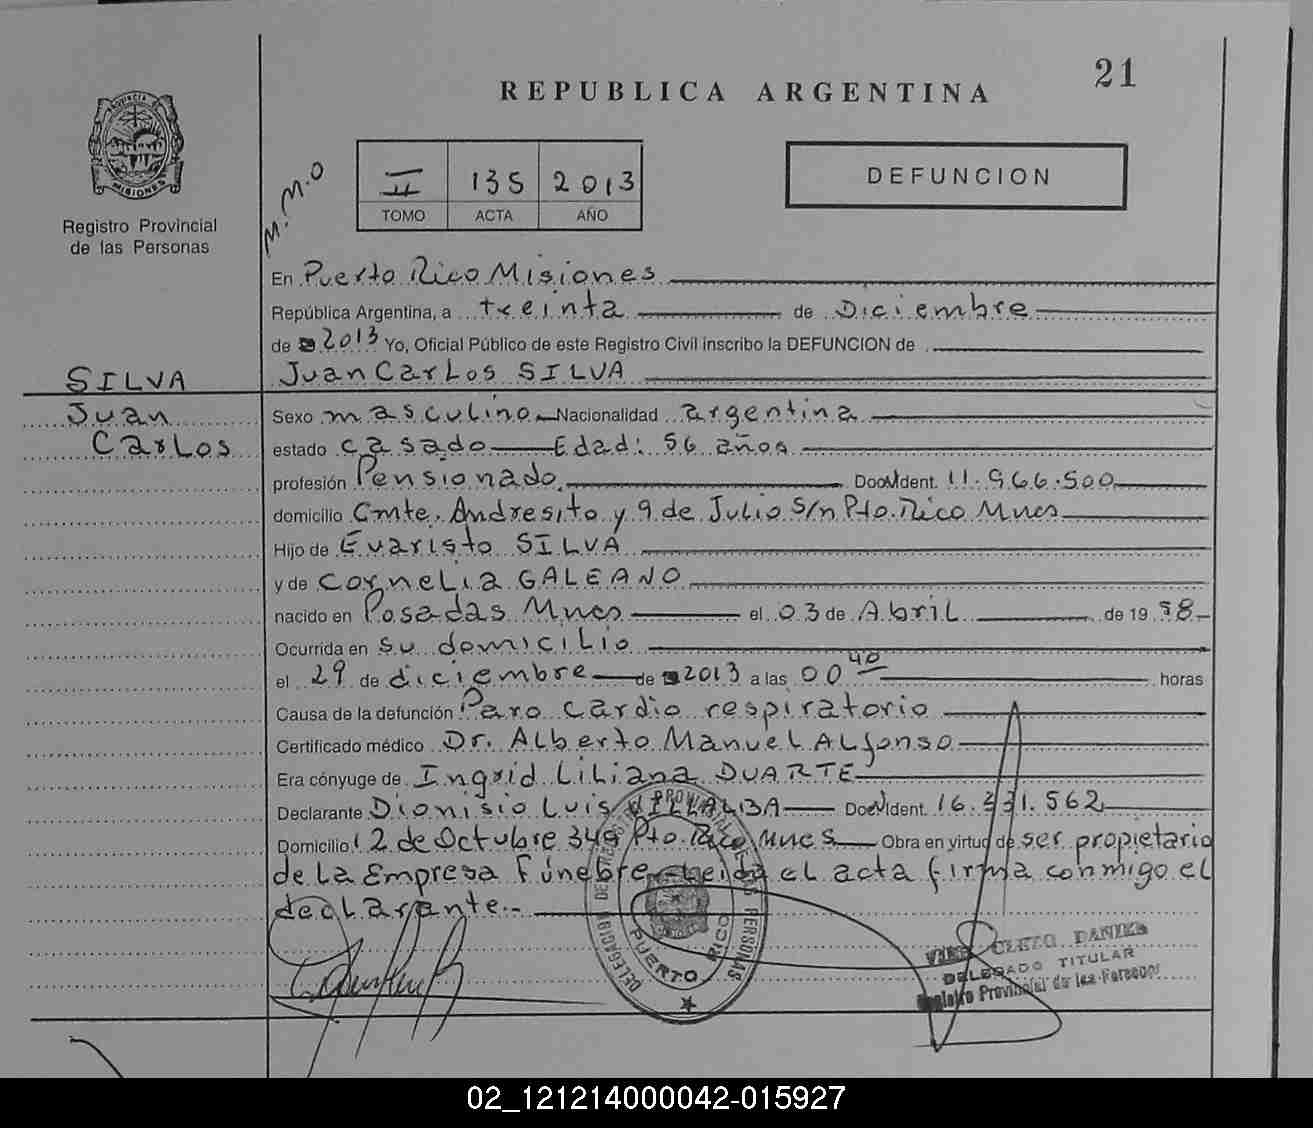 21
REPUBLICA ARGENTINA
PROVINCIA DE MISIONES
Registro Provincial
de las Personas
M.M.O
II 135 2013
TOMO ACTA AÑO
DEFUNCION
En Puerto Rico Misiones
República Argentina, a treinta de Diciembre
de 2013 Yo, Oficial Público de este Registro Civil inscribo la DEFUNCION de
Juan Carlos SILVA
SILVA
Juan
Carlos
Sexo masculino Nacionalidad argentina
estado casado Edad: 56 años
profesión Pensionado. Doc. Ident. 11.966.500
domicilio Cmte. Andresito y 9 de Julio S/n Pto. Rico Mnes
Hijo de Evaristo SILVA
y de Cornelia GALEANO
nacido en Posadas Mnes el 03 de Abril de 19 58
Ocurrida en su domicilio
el 29 de diciembre de 2013 a las 00 40 horas
Causa de la defunción Paro cardio respiratorio
Certificado médico Dr. Alberto Manuel Alfonso
Era cónyuge de Ingrid Liliana DUARTE
Declarante Dionisio Luis VILLALBA Doc. Ident. 16.331.562
Domicilio 12 de Octubre 349 Pto. Rico Mnes Obra en virtud de ser propietario
de la Empresa Fúnebre - Leida el acta firma conmigo el
declarante.-
DELEGACION DE REGISTRO PROVINCIAL DE LAS PERSONAS
PUERTO RICO
CLETO DANIEL
DELEGADO TITULAR
Registro Provincial de las Personas
02_121214000042-015927